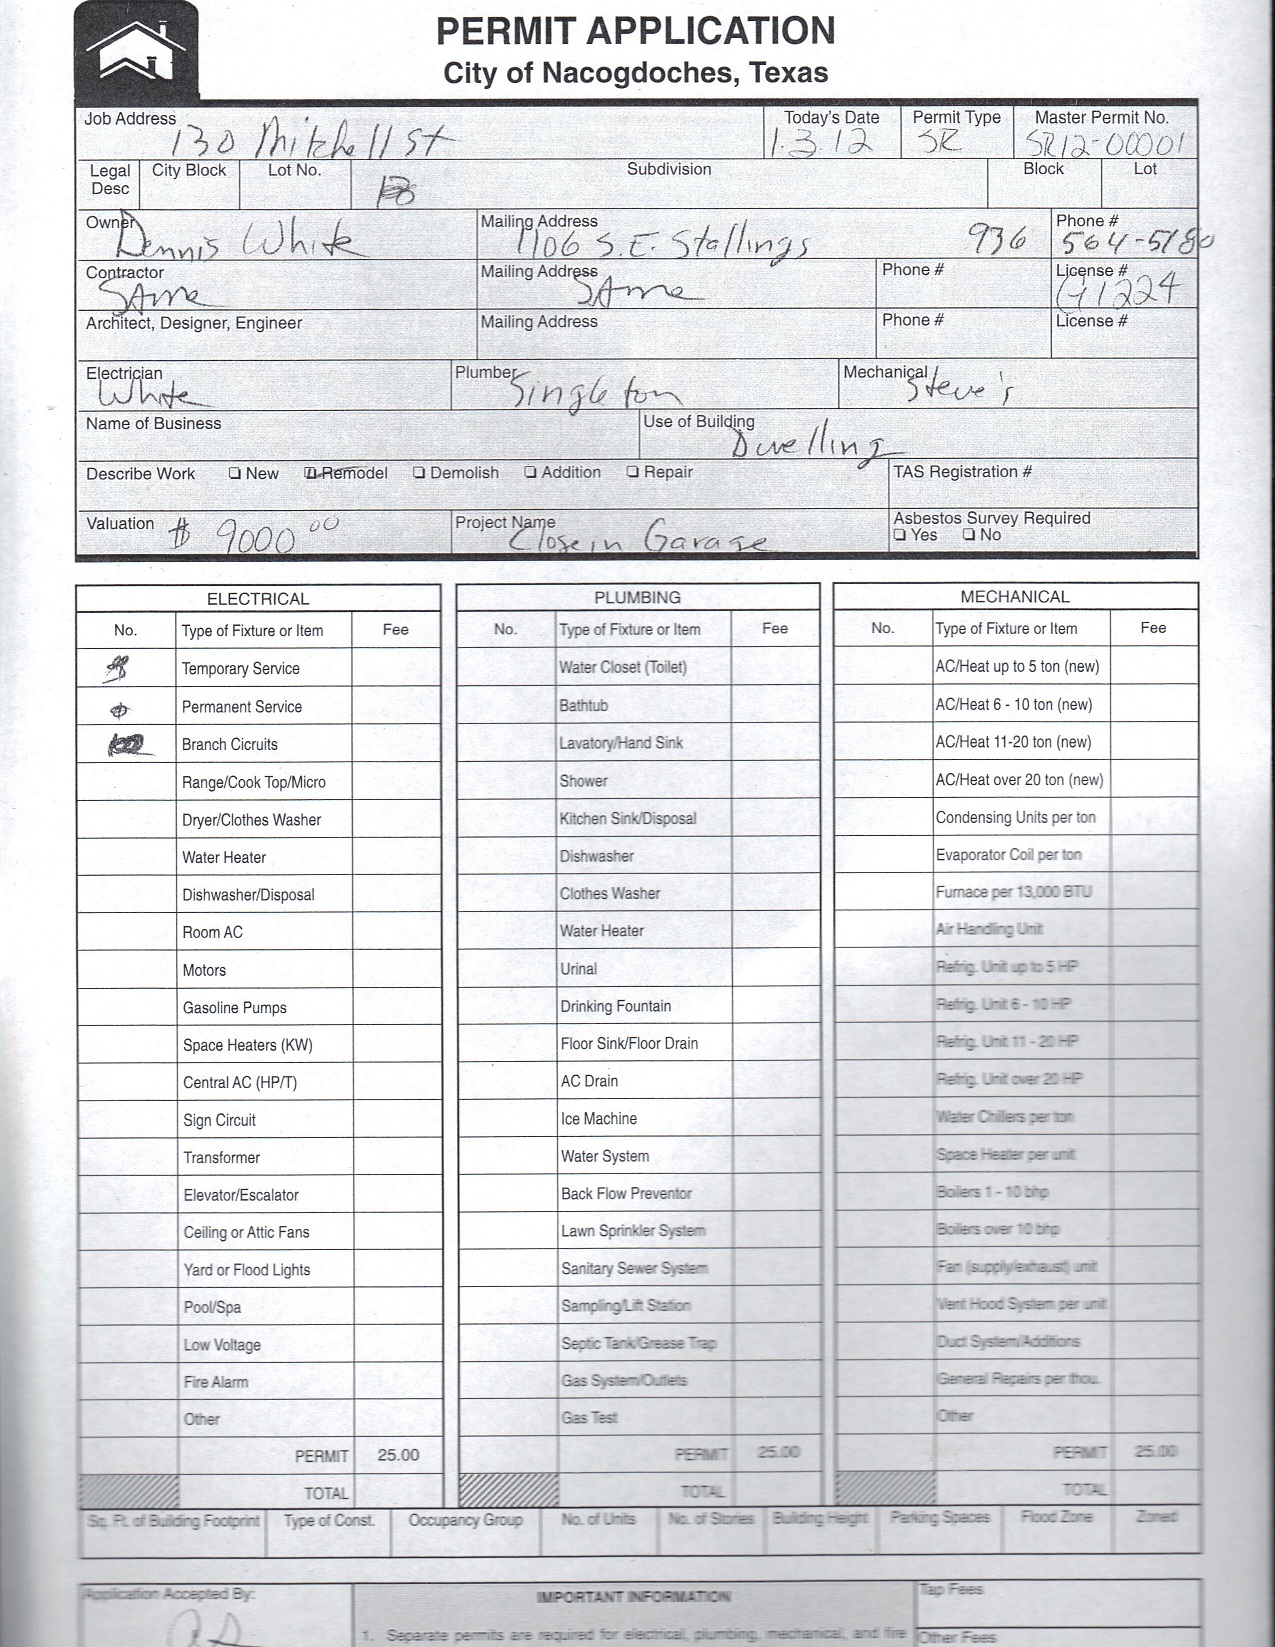 PERMIT APPLICATION
City of Nacogdoches, Texas
Job Address 130 Mitchell St Today's Date 1.3.12 Permit Type SR Master Permit No. SR12-00001
Legal Desc City Block Lot No. Subdivision Block Lot
Owner Dennis White Mailing Address 1106 S.E. Stallings Phone # 936 564-5180
Contractor SAme Mailing Address SAme Phone # License # G1224
Architect, Designer, Engineer Mailing Address Phone # License #
Electrician White Plumber Singleton Mechanical Steve's
Name of Business Use of Building Dwelling
Describe Work ❏ New ❏ Remodel ❏ Demolish ❏ Addition ❏ Repair TAS Registration #
Valuation $ 9000 00 Project Name Close in Garage Asbestos Survey Required
❏ Yes ❏ No
ELECTRICAL PLUMBING MECHANICAL
No. Type of Fixture or Item Fee No. Type of Fixture or Item Fee No. Type of Fixture or Item Fee
Temporary Service Water Closet (Toilet) AC/Heat up to 5 ton (new)
Permanent Service Bathtub AC/Heat 6 - 10 ton (new)
Branch Cicruits Lavatory/Hand Sink AC/Heat 11-20 ton (new)
Range/Cook Top/Micro Shower AC/Heat over 20 ton (new)
Dryer/Clothes Washer Kitchen Sink/Disposal Condensing Units per ton
Water Heater Dishwasher Evaporator Coil per ton
Dishwasher/Disposal Clothes Washer Furnace per 13,000 BTU
Room AC Water Heater Air Handling Unit
Motors Urinal Refrig. Unit up to 5 HP
Gasoline Pumps Drinking Fountain Refrig. Unit 6 - 10 HP
Space Heaters (KW) Floor Sink/Floor Drain Refrig. Unit 11 - 20 HP
Central AC (HP/T) AC Drain Refrig. Unit over 20 HP
Sign Circuit Ice Machine Water Chillers per ton
Transformer Water System Space Heater per unit
Elevator/Escalator Back Flow Preventor Boilers 1 - 10 bhp
Ceiling or Attic Fans Lawn Sprinkler System Boilers over 10 bhp
Yard or Flood Lights Sanitary Sewer System Fan (supply/exhaust) unit
Pool/Spa Sampling/Lift Station Vent Hood System per unit
Low Voltage Septic Tank/Grease Trap Duct System/Additions
Fire Alarm Gas System/Outlets General Repairs per thou.
Other Gas Test Other
PERMIT 25.00 PERMIT 25.00 PERMIT 25.00
TOTAL TOTAL TOTAL
Sq. Ft. of Building Footprint Type of Const. Occupancy Group No. of Units No. of Stories Building Height Parking Spaces Flood Zone Zoned
Application Accepted By: IMPORTANT INFORMATION Tap Fees
1. Separate permits are required for electrical, plumbing, mechanical, and fire Other Fees